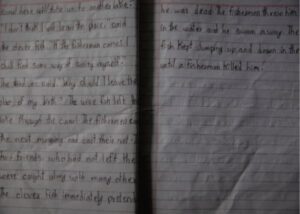 canal here will take us to another lake."
"I don't think I will leave this place." said
the clever fish. "If the fisherman comes, I
shall find some way of saving myself."
The third one said, "Why should I leave the
place of my birth." The wise fish left the
lake through the canal. The fishermen came
the next morning and cast their net. The
two friends who had not left the
were caught along with many other
The clever fish immediately pretend
he was dead. The fishermen threw him
in the water and he swam away. The
fish kept jumping up and down in the
until a fisherman killed him.